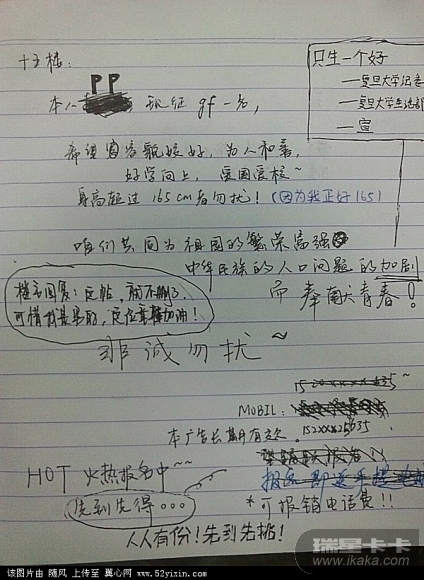 只生一个好
——复旦大学纪委
——复旦大学生活部
—宣
十三楼:
PP
本人 现征 gf 一名,
希望 容貌姣好, 为人和善,
好学向上, 爱国爱校~
身高超过 165cm 者勿扰! (因为我正好165)
咱们共同为祖国的繁荣富强
中华民族的人口问题的加剧
而 奉献青春!
楼主回复: 反帖, 就不删了
可惜我是男的, 加油!
非诚勿扰~
MOBIL:
152xxx25635
本广告长期有效.
HOT 火热报名中~~
先到先得...
报名即送手提
*可报销电话费!!
人人有份!先到先挑!
瑞星卡卡
www.ikaka.com
该图片由 随风 上传至 翼心网 www.52yixin.com